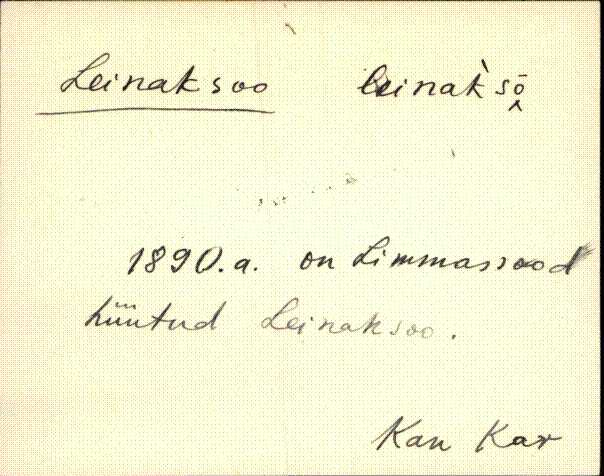 Leinaksoo leinak̀sō̭
1890.a. on Limmassood
hüütud Leinaksoo.
Kan Kar